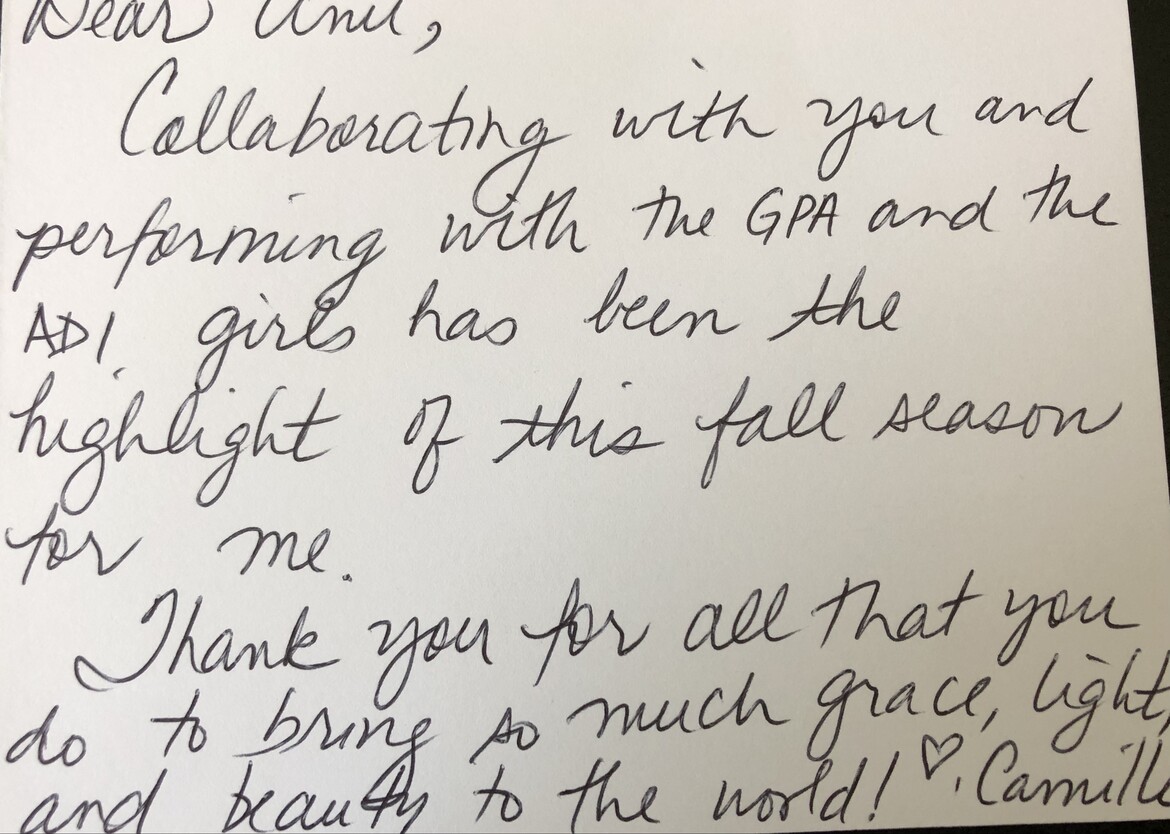 Dear
Collaborating with you and
performing with the GPA and the
ADI girls has been the
highlight of this fall season
for me.
Thank you for all that you
do to bring so much grace, light,
and beauty to the world! ♡. Camille